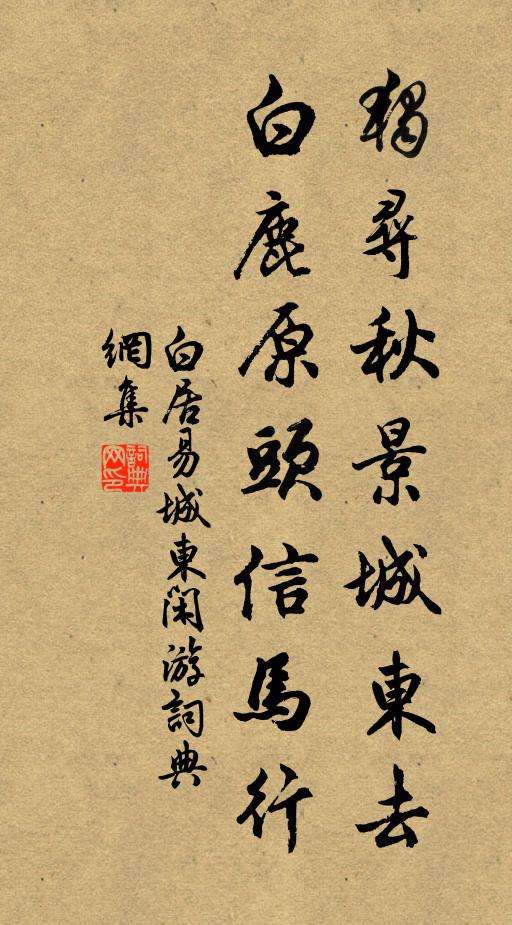 獨尋秋景城東去
白鹿原頭信馬行
白居易城東閑游詞典
網集
詞典
网印